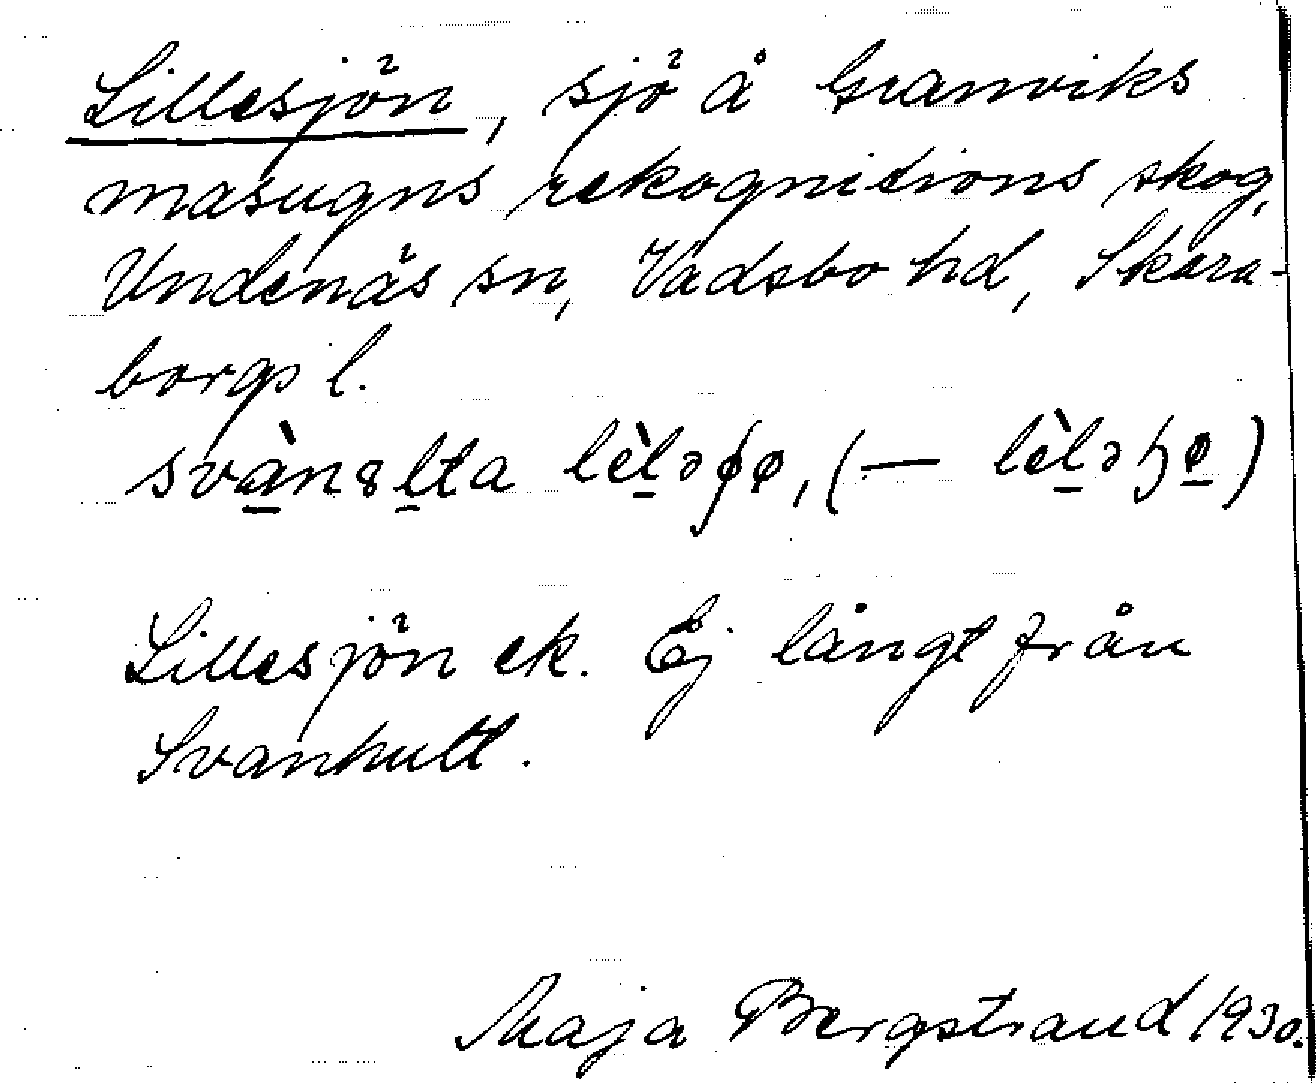 Lillesjön, sjö å Granviks
masugns rekognitions skog,
Undenäs sn, Vadsbo hd, Skara-
borgs l.
svàn8lta lèləʃø, (— lèləɧø)
Lillesjön ek. Ej långt från
Svanhult.
Maja Bergstrand 1930.